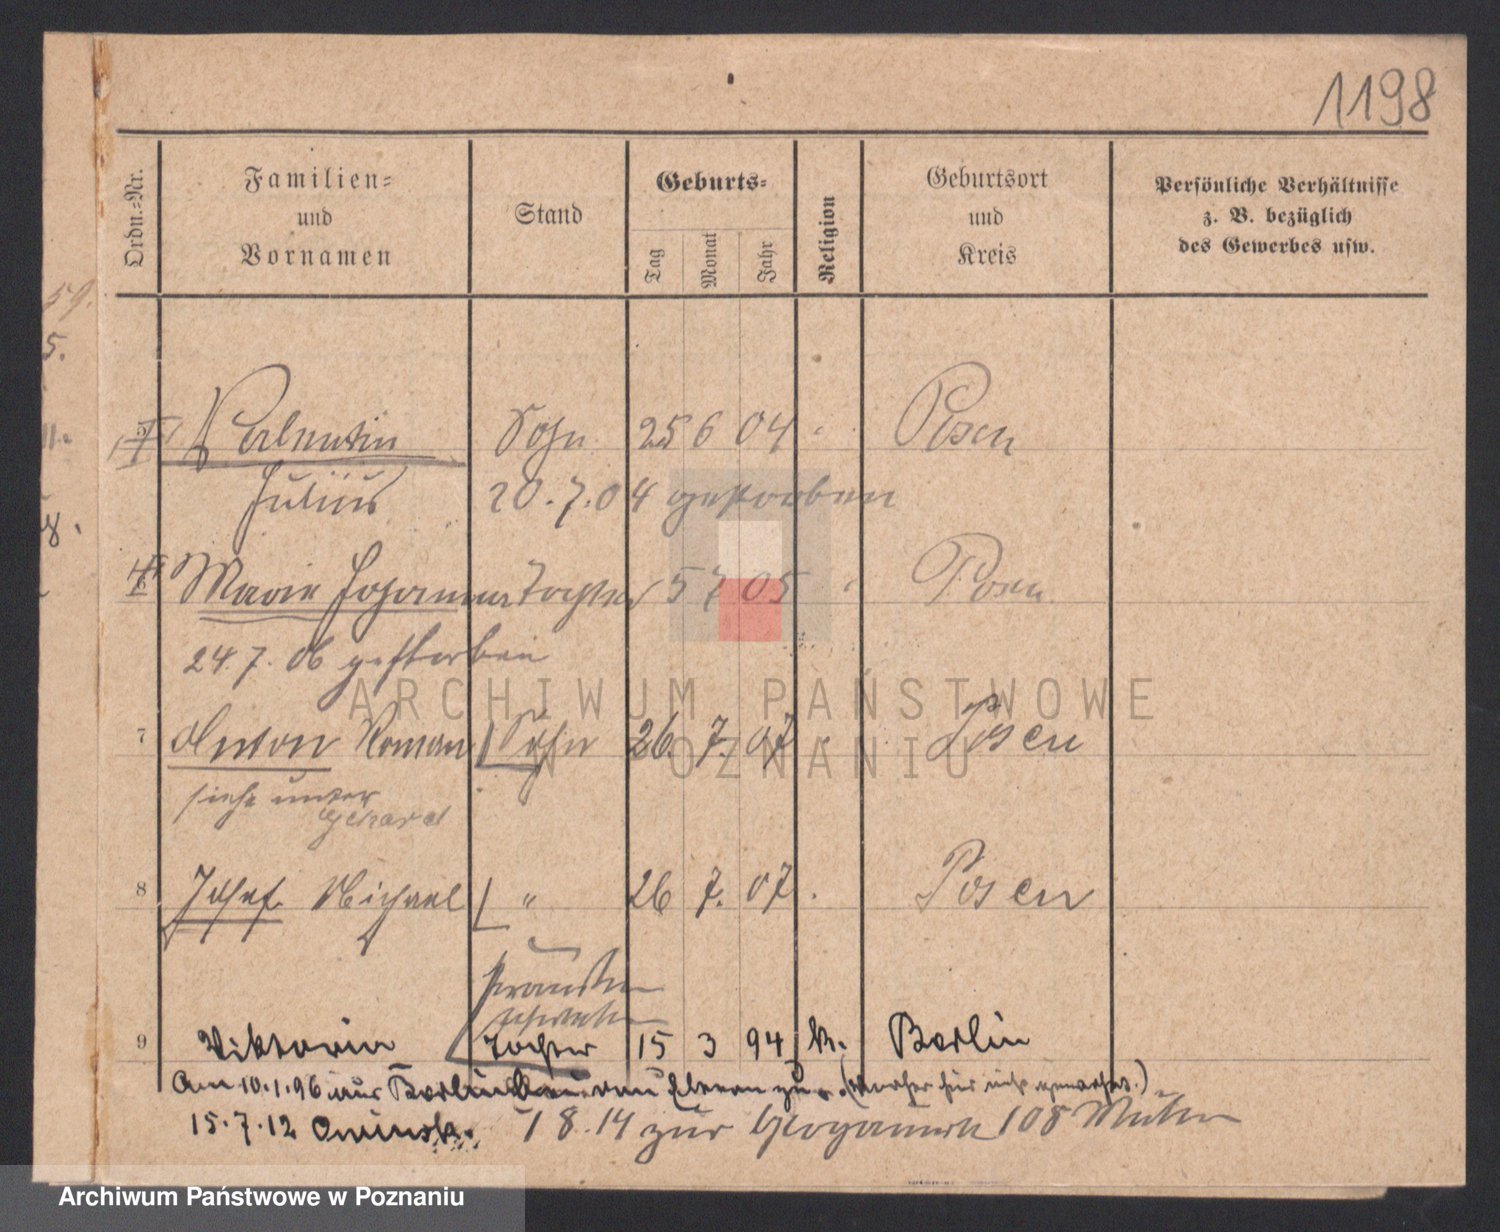 1198
Ordn.-Nr.
Familien-
und
Vornamen
Stand
Geburts-
Tag
Monat
Jahr
Religion
Geburtsort
und
Kreis
Persönliche Verhältnisse
z. B. bezüglich
des Gewerbes usw.
59.
5.
11.
8.
Valentin Sohn 25 6 04 Posen
Julius 20.7.04 gestorben
6 Marie Johanna Tochter 5 7 05 Posen
24.7.06 gestorben
ARCHIWUM PAŃSTWOWE
W POZNANIU
7 Anton Roman Sohn 26. 7. 07 Posen
siehe unter
8 Josef Michael " 26 7. 07 Posen
9 Viktoria Tochter 15 3 94 k. Berlin
Am 10.1.96 aus Berlin von Eltern zu. (vorher hier nicht gemeldet.)
15.7.12 1 8.14 zur Glogauerstr 108 Mutter
Archiwum Państwowe w Poznaniu